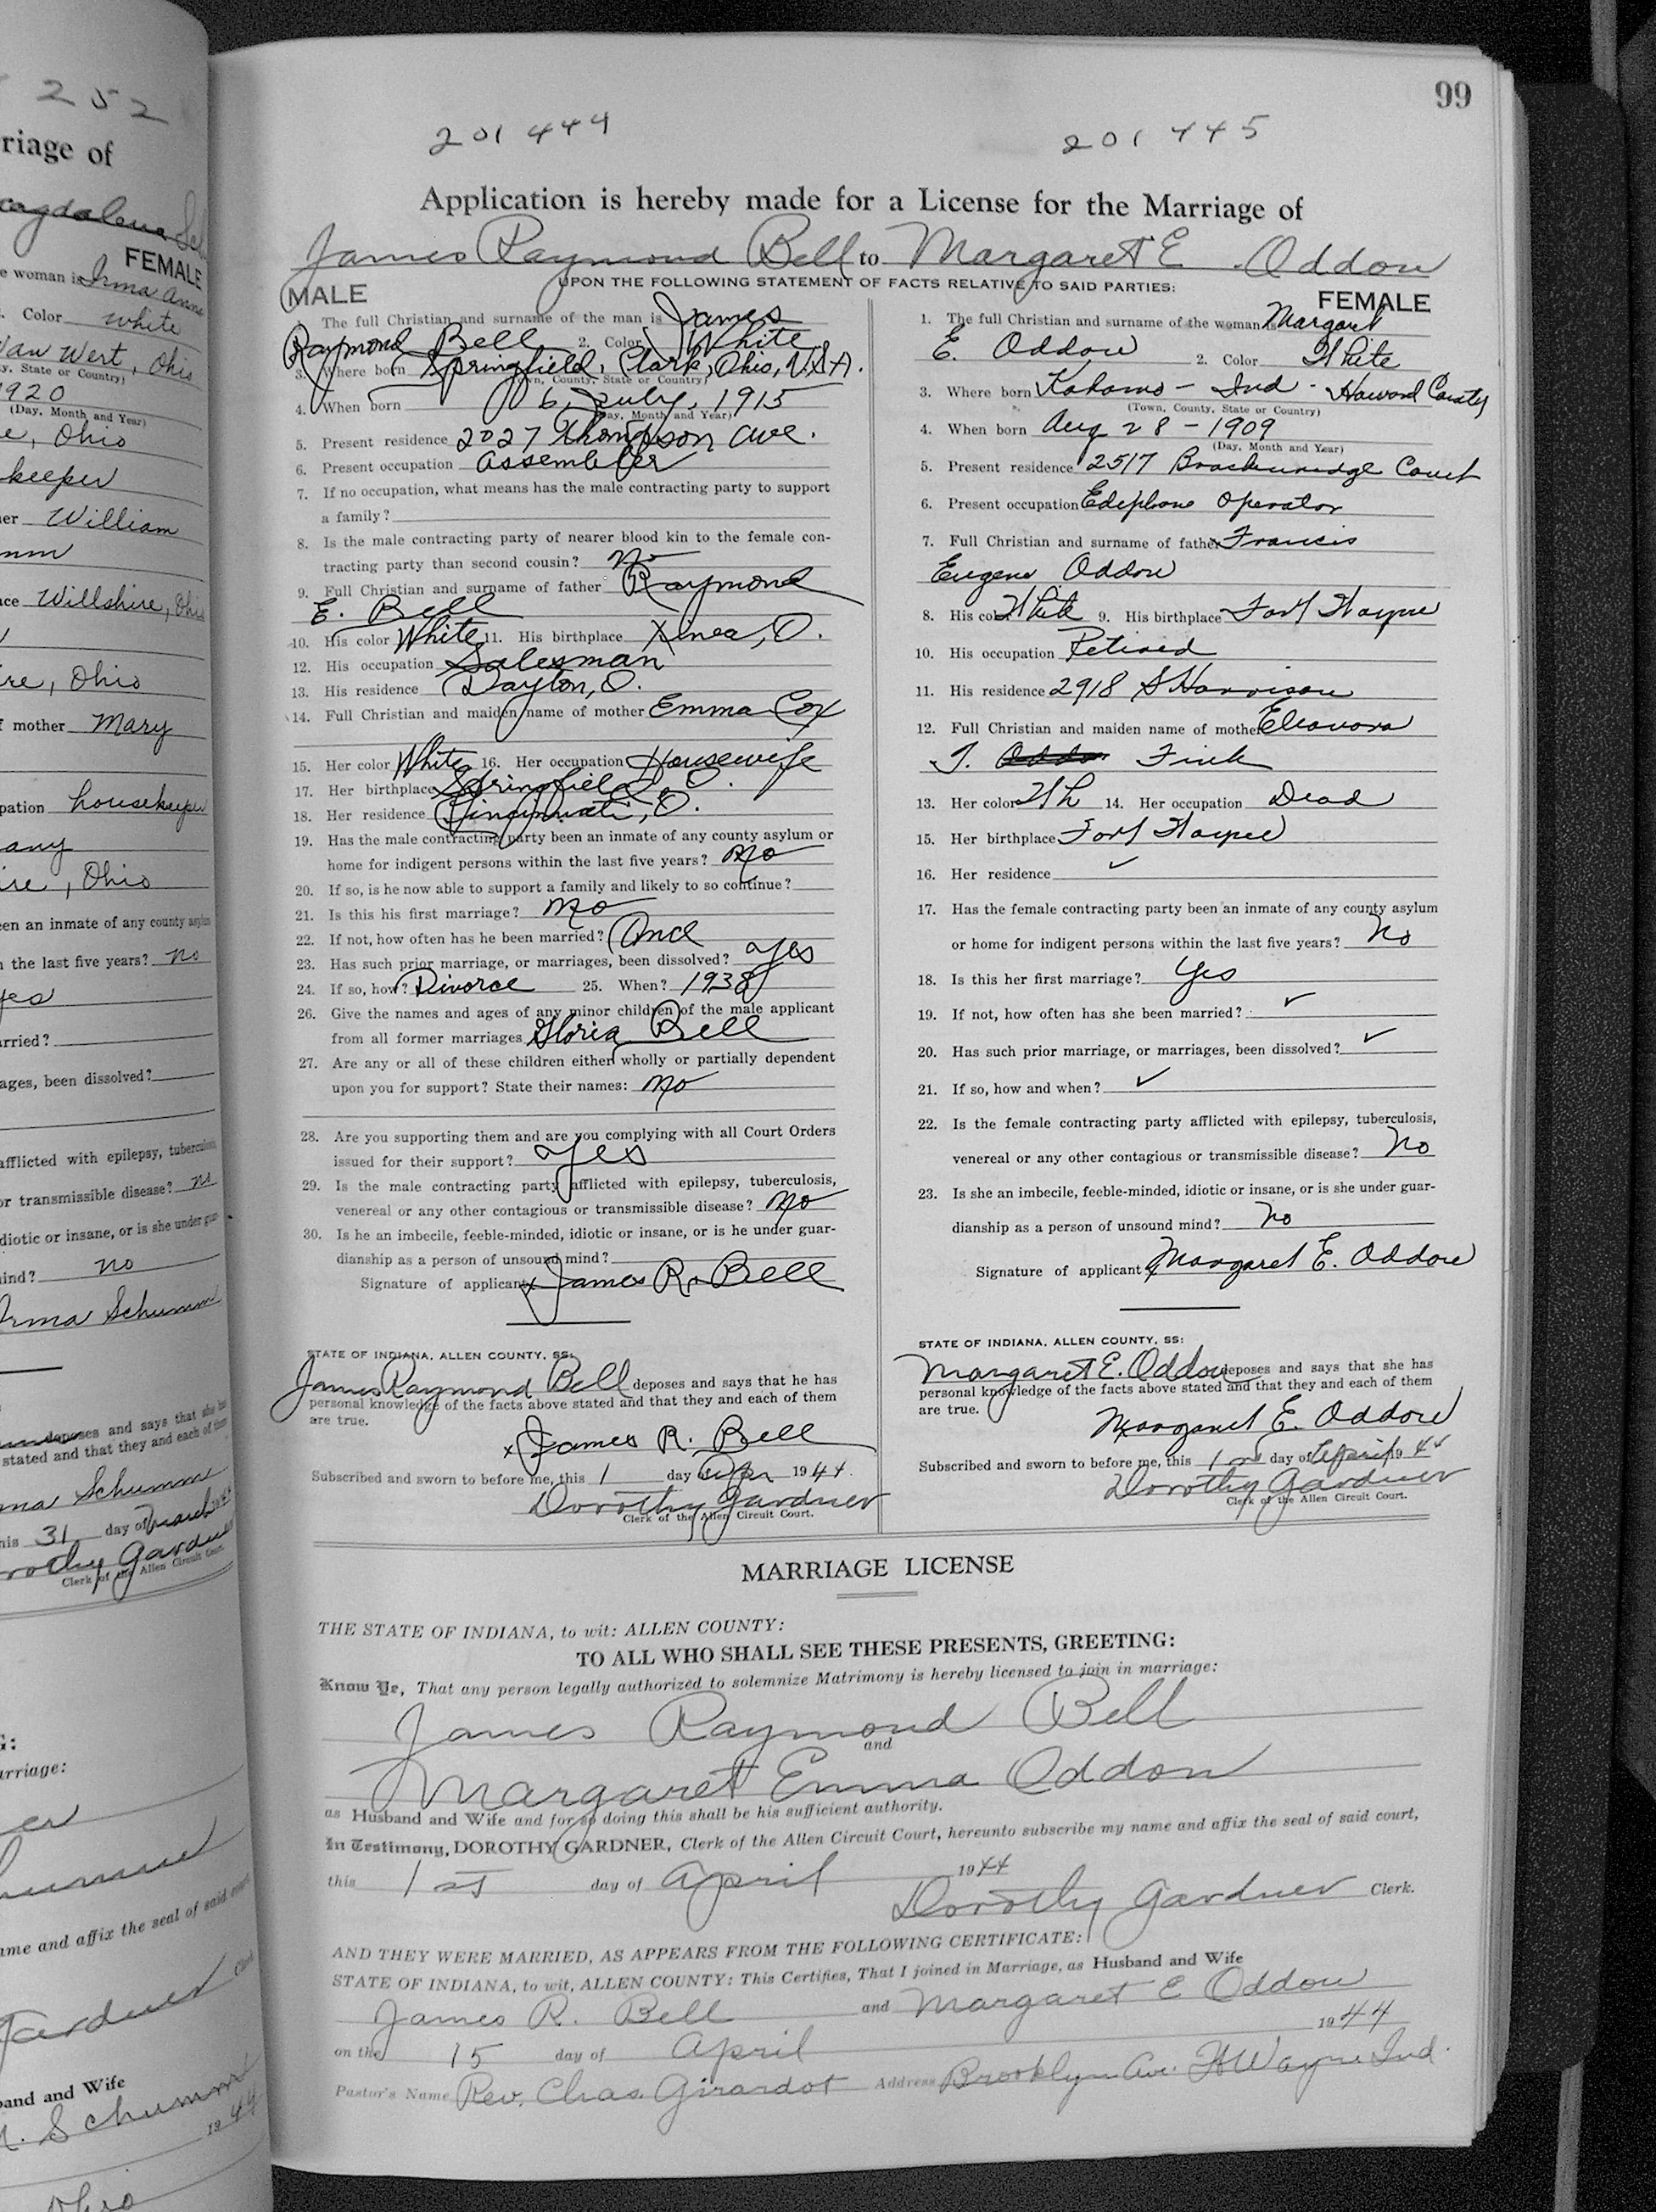 252
riage of
FEMALE
e woman is Irma Anna
Color white
Van Wert, Ohio
y, State or Country)
1920
(Day, Month and Year)
e, Ohio
keeper
er William
mm
ace Willshire, Ohio
ire, Ohio
f mother Mary
pation housekeeper
any
ire, Ohio
een an inmate of any county asylum
n the last five years? no
yes
arried?
ages, been dissolved?
afflicted with epilepsy, tuberculosis
or transmissible disease? no
idiotic or insane, or is she under guar-
ind? no
Irma Schumm
deposes and says that she has
stated and that they and each of them
ma Schumm
his 31 day of March
rothy Gardner
Clerk of the Allen Circuit Court.
G:
arriage:
er
humm
ame and affix the seal of said court
Gardner Clerk
band and Wife
. Schumm
1944
Ohio
99
201444 201445
Application is hereby made for a License for the Marriage of
James Raymond Bell to Margaret E. Oddou
UPON THE FOLLOWING STATEMENT OF FACTS RELATIVE TO SAID PARTIES:
MALE
1. The full Christian and surname of the man is James
Raymond Bell 2. Color White
3. Where born Springfield, Clark, Ohio, U.S.A.
(Town, County, State or Country)
4. When born 6, July, 1915
(Day, Month and Year)
5. Present residence 2027 Thompson Ave.
6. Present occupation Assembler
7. If no occupation, what means has the male contracting party to support
a family?
8. Is the male contracting party of nearer blood kin to the female con-
tracting party than second cousin? No
9. Full Christian and surname of father Raymond
E. Bell
10. His color White 11. His birthplace Xinea, O.
12. His occupation Salesman
13. His residence Dayton, O.
14. Full Christian and maiden name of mother Emma Cox
15. Her color White 16. Her occupation Housewife
17. Her birthplace Springfield, O.
18. Her residence Cincinnati, O.
19. Has the male contracting party been an inmate of any county asylum or
home for indigent persons within the last five years? No
20. If so, is he now able to support a family and likely to so continue?
21. Is this his first marriage? No
22. If not, how often has he been married? Once
23. Has such prior marriage, or marriages, been dissolved? Yes
24. If so, how? Divorce 25. When? 1938
26. Give the names and ages of any minor children of the male applicant
from all former marriages Gloria Bell
27. Are any or all of these children either wholly or partially dependent
upon you for support? State their names: No
28. Are you supporting them and are you complying with all Court Orders
issued for their support? Yes
29. Is the male contracting party afflicted with epilepsy, tuberculosis,
venereal or any other contagious or transmissible disease? No
30. Is he an imbecile, feeble-minded, idiotic or insane, or is he under guar-
dianship as a person of unsound mind?
Signature of applicant x James R. Bell
STATE OF INDIANA, ALLEN COUNTY, SS:
James Raymond Bell deposes and says that he has
personal knowledge of the facts above stated and that they and each of them
are true.
x James R. Bell
Subscribed and sworn to before me, this 1 day of Apr 1944.
Dorothy Gardner
Clerk of the Allen Circuit Court.
FEMALE
1. The full Christian and surname of the woman is Margaret
E. Oddou 2. Color White
3. Where born Kokomo - Ind - Howard County
(Town, County, State or Country)
4. When born Aug 28 - 1909
(Day, Month and Year)
5. Present residence 2517 Brackenridge Court
6. Present occupation Ediphone Operator
7. Full Christian and surname of father Francis
Eugene Oddou
8. His color White 9. His birthplace Fort Wayne
10. His occupation Retired
11. His residence 2918 S Harrison
12. Full Christian and maiden name of mother Eleanora
J. Fink
13. Her color Wh 14. Her occupation Dead
15. Her birthplace Fort Wayne
16. Her residence ✓
17. Has the female contracting party been an inmate of any county asylum
or home for indigent persons within the last five years? No
18. Is this her first marriage? Yes
19. If not, how often has she been married? ✓
20. Has such prior marriage, or marriages, been dissolved? ✓
21. If so, how and when? ✓
22. Is the female contracting party afflicted with epilepsy, tuberculosis,
venereal or any other contagious or transmissible disease? No
23. Is she an imbecile, feeble-minded, idiotic or insane, or is she under guar-
dianship as a person of unsound mind? No
Signature of applicant Margaret E. Oddou
STATE OF INDIANA, ALLEN COUNTY, SS:
Margaret E. Oddou deposes and says that she has
personal knowledge of the facts above stated and that they and each of them
are true.
Margaret E. Oddou
Subscribed and sworn to before me, this 1 day of April 1944
Dorothy Gardner
Clerk of the Allen Circuit Court.
MARRIAGE LICENSE
THE STATE OF INDIANA, to wit: ALLEN COUNTY:
TO ALL WHO SHALL SEE THESE PRESENTS, GREETING:
Know Ye, That any person legally authorized to solemnize Matrimony is hereby licensed to join in marriage:
James Raymond Bell
and
Margaret Emma Oddou
as Husband and Wife and for so doing this shall be his sufficient authority.
In Testimony, DOROTHY GARDNER, Clerk of the Allen Circuit Court, hereunto subscribe my name and affix the seal of said court,
this 1st day of April 1944
Dorothy Gardner Clerk.
AND THEY WERE MARRIED, AS APPEARS FROM THE FOLLOWING CERTIFICATE:
STATE OF INDIANA, to wit, ALLEN COUNTY: This Certifies, That I joined in Marriage, as Husband and Wife
James R. Bell and Margaret E Oddou
on the 15 day of April 1944
Pastor's Name Rev. Chas. Girardot Address Brooklyn Ave. Ft Wayne Ind.